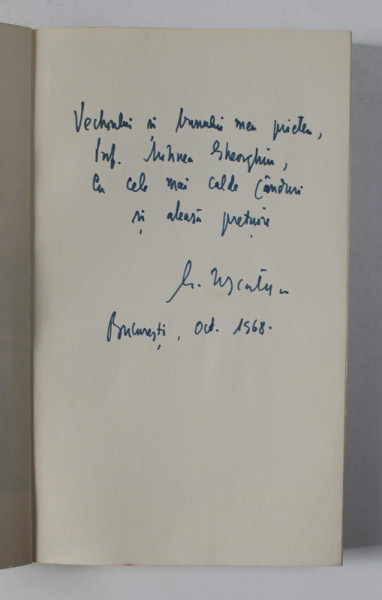 Vechiului și bunului meu prieten,
Prof. Mihnea Gheorghiu,
Cu cele mai calde gânduri
și aleasă prețuire
G. Uscatescu
București, Oct. 1968.